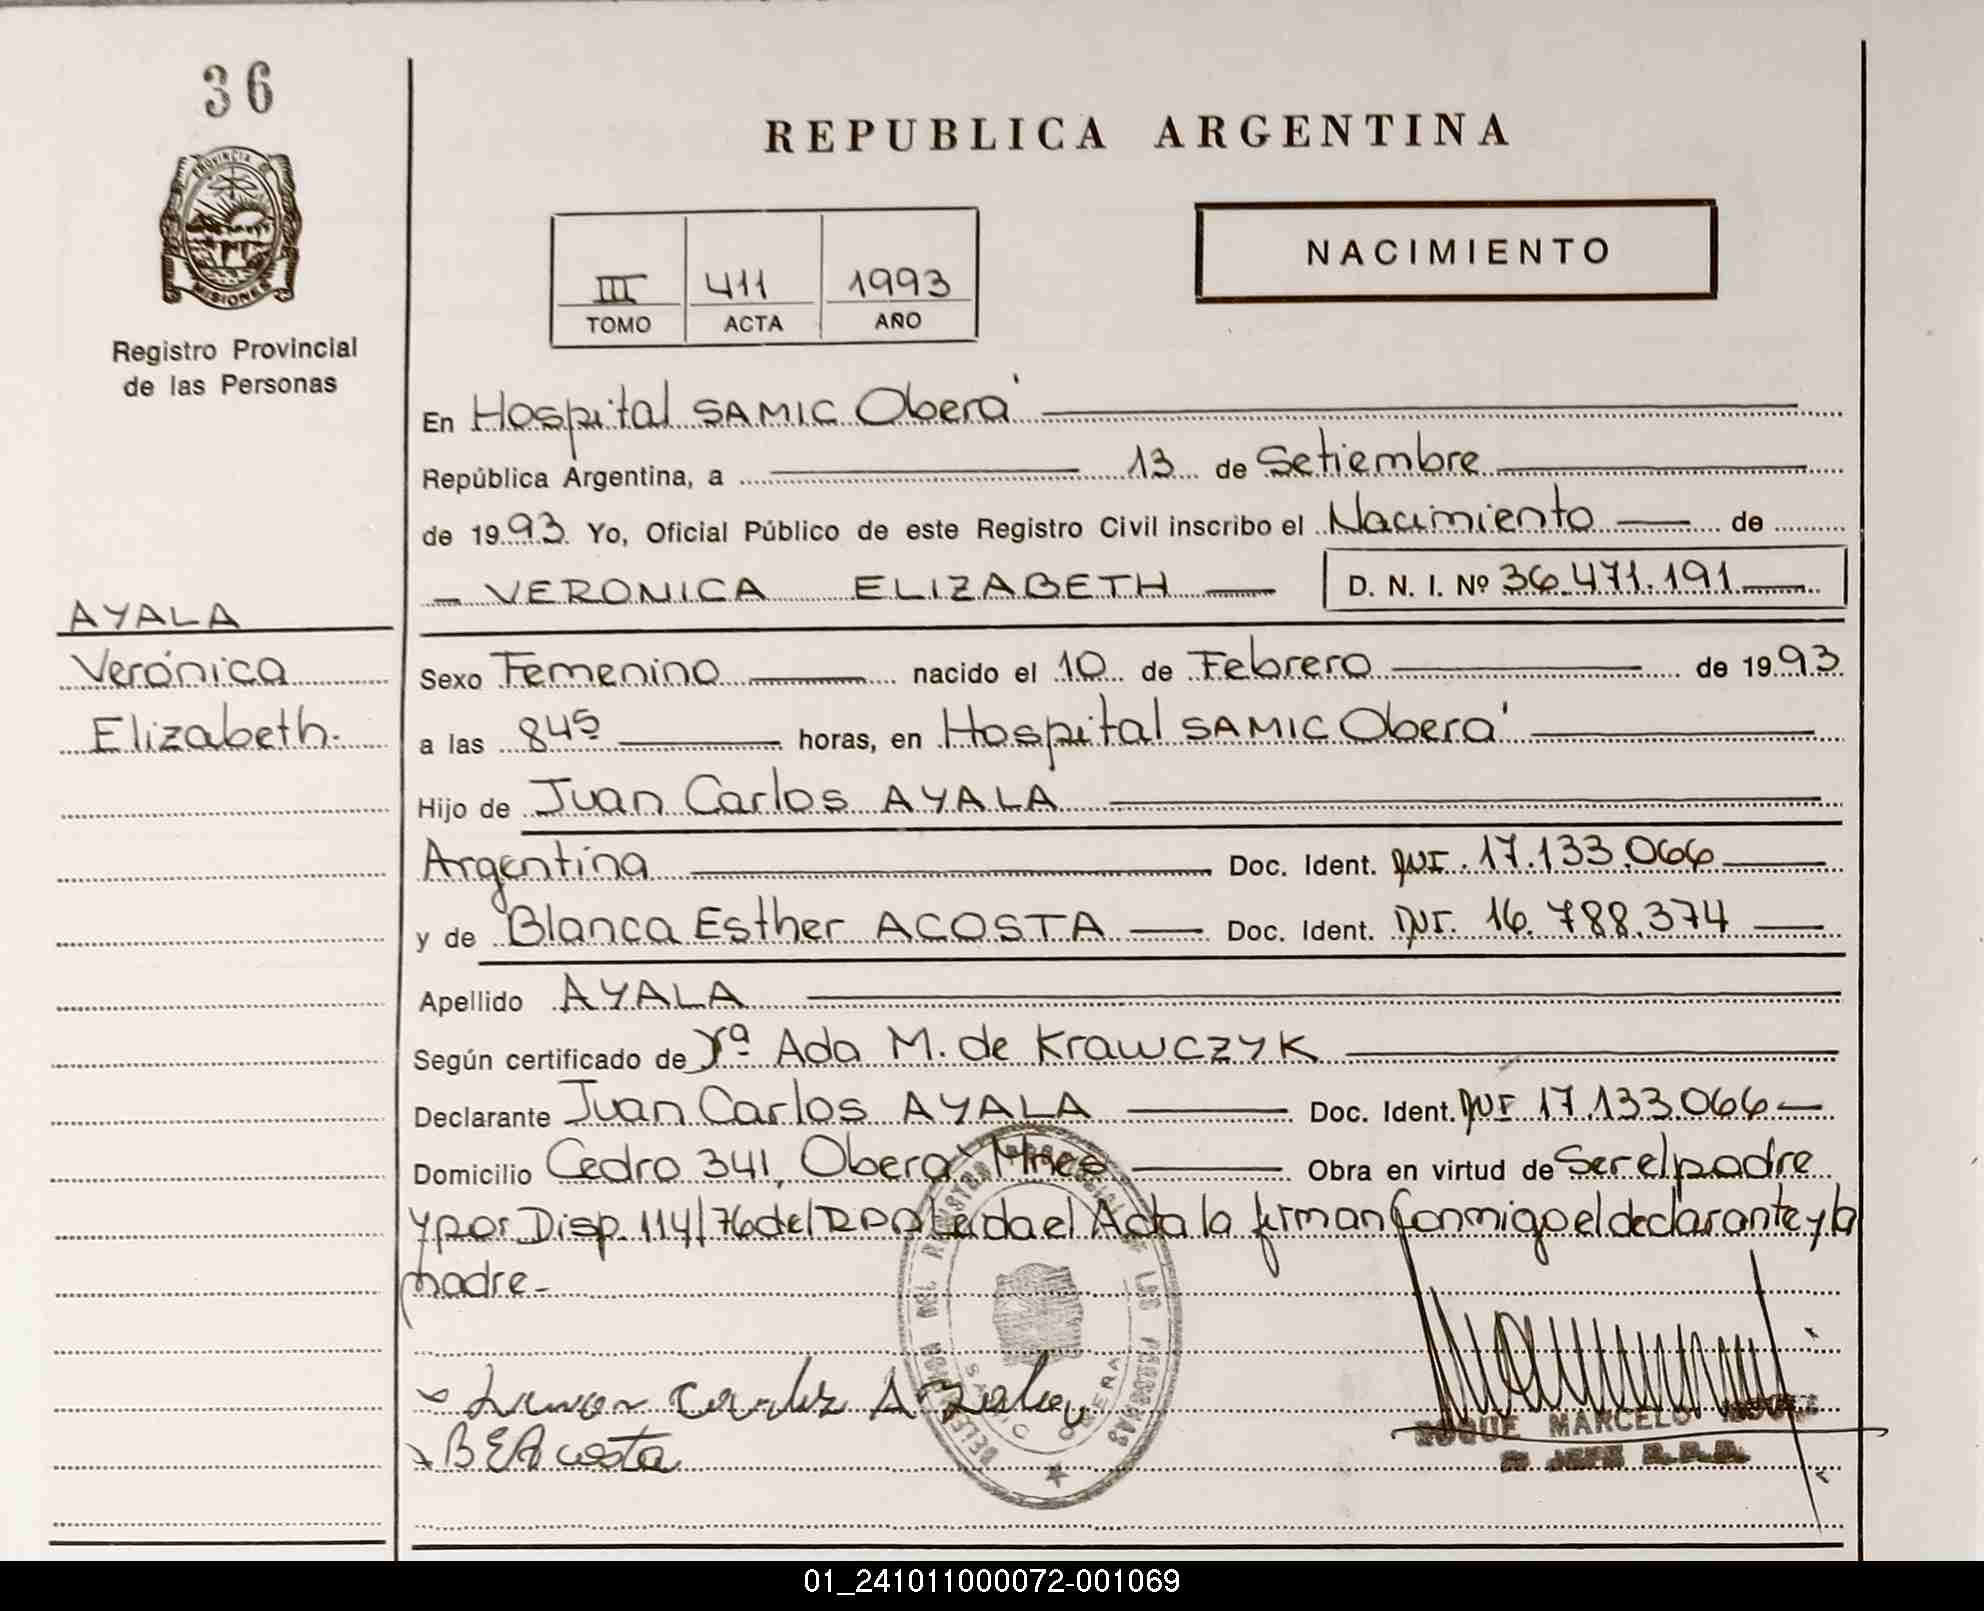 36
PROVINCIA DE
MISIONES
Registro Provincial
de las Personas
REPUBLICA ARGENTINA
III 411 1993
TOMO ACTA AÑO
NACIMIENTO
En Hospital SAMIC Oberá
República Argentina, a 13 de Setiembre
de 1993 Yo, Oficial Público de este Registro Civil inscribo el Nacimiento de
VERONICA ELIZABETH D. N. I. Nº 36.471.191
AYALA
Verónica
Elizabeth.
Sexo Femenino nacido el 10 de Febrero de 1993
a las 845 horas, en Hospital SAMIC Oberá
Hijo de Juan Carlos AYALA
Argentina Doc. Ident. DNI. 17.133.066
y de Blanca Esther ACOSTA Doc. Ident. DNI. 16.788.374
Apellido AYALA
Según certificado de Ada M. de Krawczyk
Declarante Juan Carlos AYALA Doc. Ident. DNI 17.133.066
Domicilio Cedro 341, Oberá Mnes Obra en virtud de Ser el padre
y por Disp. 114/76 del RPP Leida el Acta la firman conmigo el declarante y la
madre-
DELEGACION DEL REGISTRO PROVINCIAL DE LAS PERSONAS
OBERA
B E Acosta
ROQUE MARCELO
JEFE R.P.P.
01_241011000072-001069